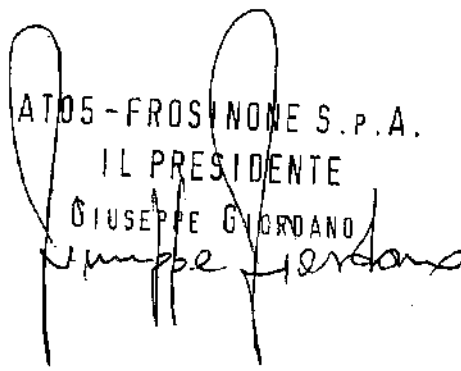 ATO5-FROSINONE S.P.A.
IL PRESIDENTE
GIUSEPPE GIORDANO
Giuseppe Giordano